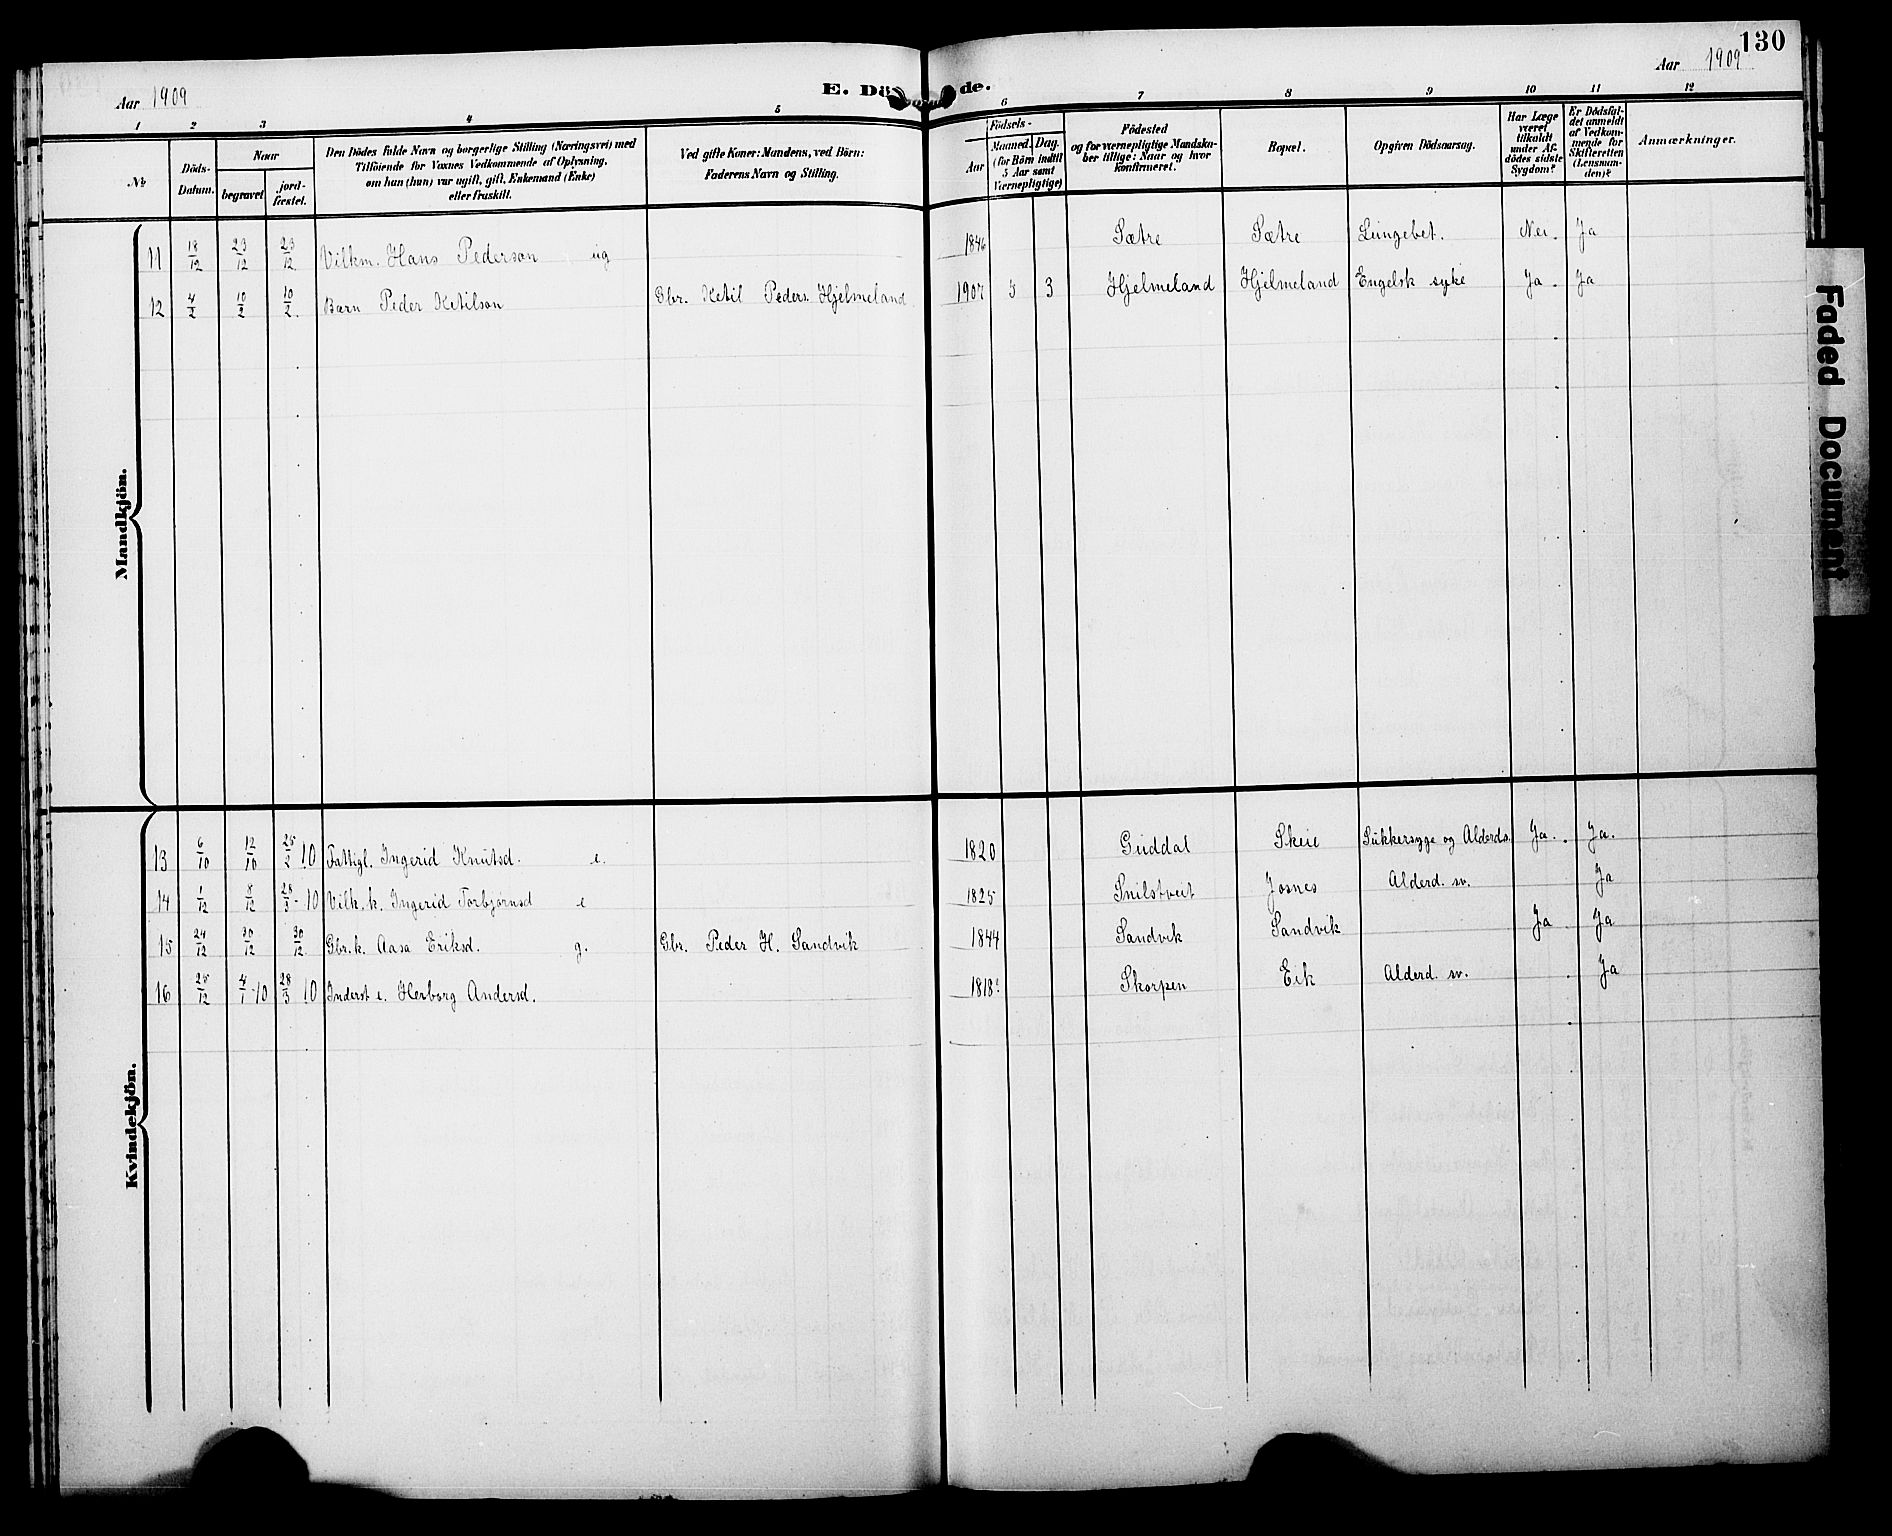 130
Aar 1909
E. Dö de.
Aar 1909
1 2 3 4 5 6 7 8 9 10 11 12
No
Döds-Datum.
Naar
begravet
jord-fæstet.
Den Dödes fulde Navn og borgerlige Stilling (Næringsvei) med
Tilföiende for Voxnes Vedkommende af Oplysning,
om han (hun) var ugift, gift, Enkemand (Enke)
eller fraskilt.
Ved gifte Koner: Mandens, ved Börn:
Faderens Navn og Stilling.
Födsels-
Aar
Maaned. Dag.
(for Börn indtil
5 Aar samt
Værnepligtige)
Födested
og for værnepligtige Mandska-
ber tillige: Naar og hvor
konfirmeret.
Bopæl.
Opgiven Dödsaarsag.
Har Læge
været
tilkaldt
under Af-
dödes sidste
Sygdom?
Er Dödsfal-
det anmeldt
af Vedkom-
mende for
Skifteretten
(Lensman-
den)?
Anmærkninger.
Mandkjön.
11 18/12 23/12 23/12 Vilkm. Hans Pederson ug 1846 Sætre Sætre Lungebet. Nei. Ja
12 4/2 10/2 10/2. Barn Peder Ketilson Gbr. Ketil Peders. Hjelmeland 1907 5 3 Hjelmeland Hjelmeland Engelsk syke Ja. Ja
Kvindekjön.
13 6/10 12/10 25/2 10 Fattigl. Ingerid Knutsd. e. 1820 Guddal Skeie Sukkersyge og Alderds. Ja. Ja.
14 1/12 8/12 28/3-10 Vilk. k. Ingerid Torbjørnsd e 1825 Snilstveit Josnes Alderd. sv. Ja
15 24/12 30/12 30/12 Gbr. k. Aasa Eriksd. g. Gbr. Peder H. Sandvik 1844 Sandvik Sandvik Ja Ja
16 25/12 4/1-10 28/3 10 Inderst e. Herborg Andersd. 1818? Skorpen Eik Alderd. sv. Ja
Faded Document